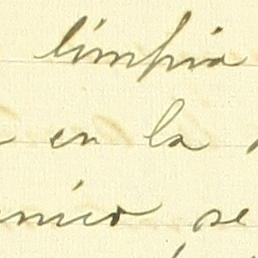 limpia
en la
se